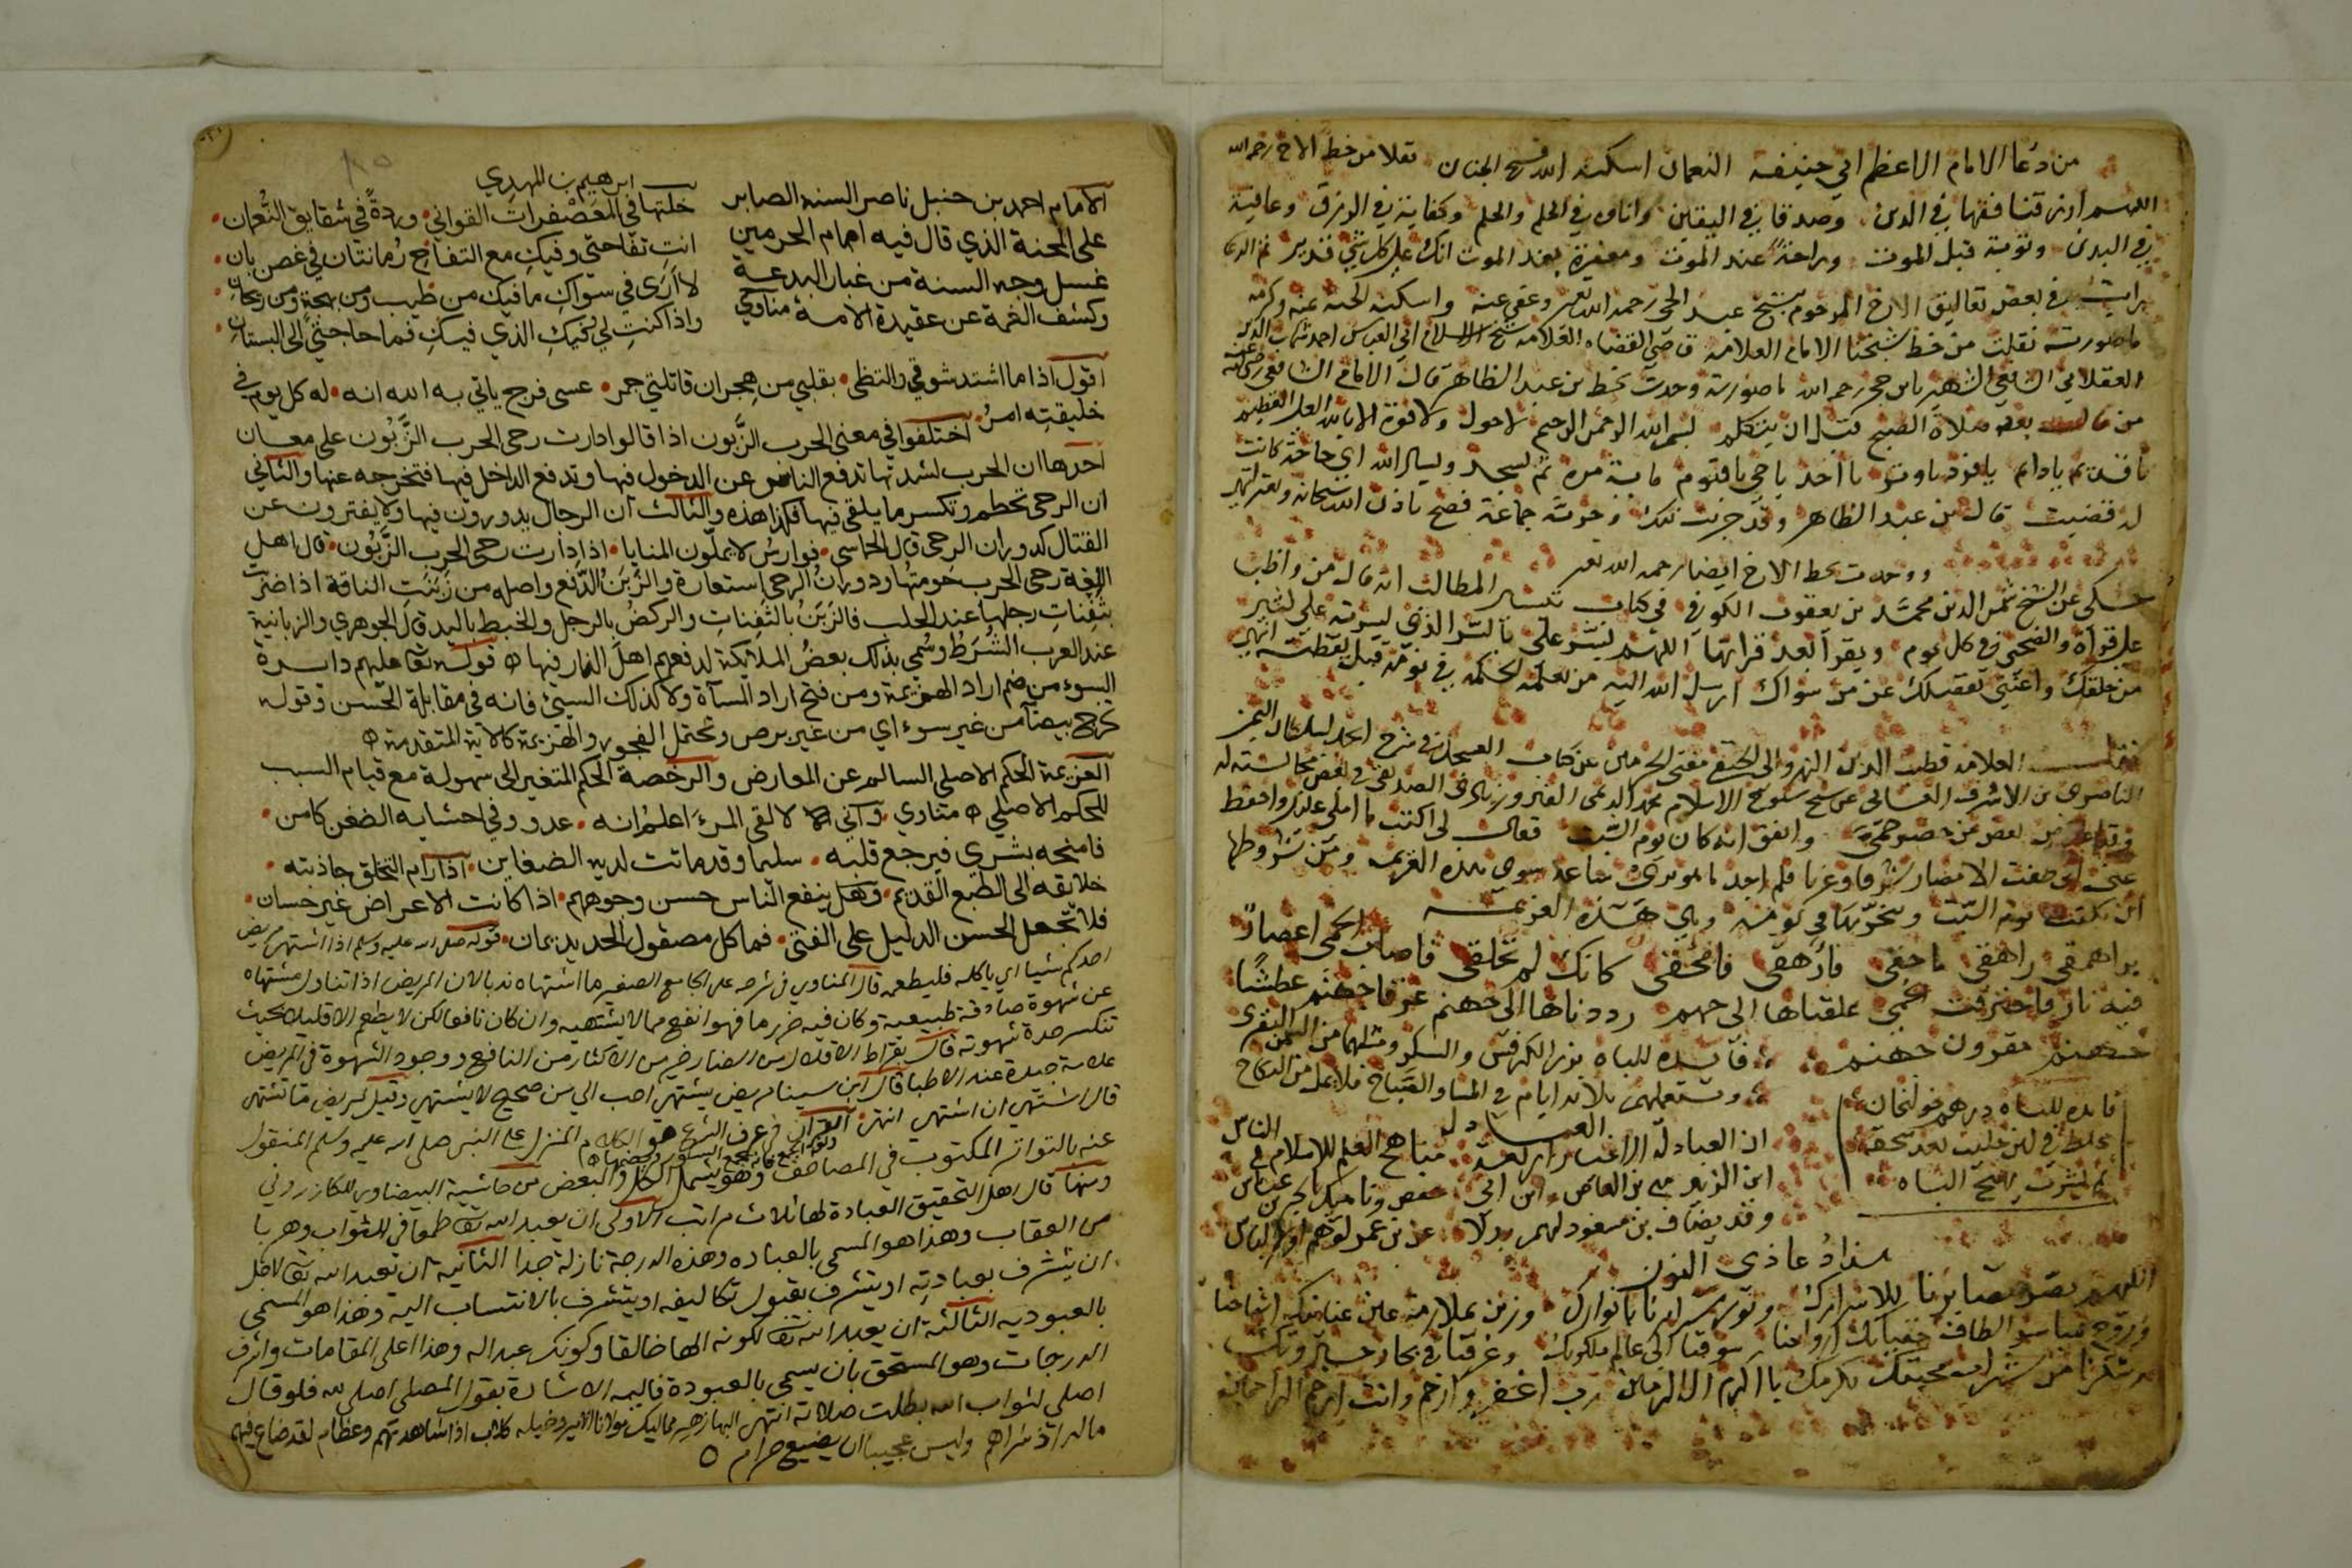 من دعا الامام الاعظم ابي حنيفه النعمان اسكنه الله فسيح الجنان نقلا من خط الاخ رحمه الله
اللهم ارزقنا فقها في الدين وصدقا في اليقين واناه في الحلم والحلم وكفاية في الرزق وعافية
في البدن وتوبة قبل الموت وراحة عند الموت ومغفرة بعد الموت انك على كل شي قدير
رايت في بعض تعاليق الاخ المرحوم الشيخ عبد الحي رحمه الله وعفى عنه واسكنه الجنه
ما صورته نقلت من خط شيخنا الامام العلامه قاضي القضاه العلامه شيخ الاسلام ابي العباس احمد شهاب الدين
العسقلاني الشافعي الشهير بابن حجر رحمه الله ما صورته وجدت بخط بن عبد الظاهر قال الامام الشافعي رضي الله عنه
من قال بعد صلاة الصبح قبل ان يتكلم بسم الله الرحمن الرحيم لاحول ولا قوة الا بالله العلي العظيم
يا قديم يا دايم يا فرد يا وتر يا احد يا حي يا قيوم ماية مرة ثم يسجد ويسال الله اي حاجة كانت
له قضيت قال بن عبد الظاهر وقد جربت ذلك وجربه جماعة فصح باذن الله سبحانه وتعالى
ووجدت بخط الاخ ايضا رحمه الله
حكى عن الشيخ شمس الدين محمد بن يعقوب الكوفي في كتاب تيسير المطالب انه قال من واظب
على قراة والضحى في كل يوم ويقرا بعد قراتها اللهم يسر علي باليسر الذي يسرته على كثير
من خلقك واغنني بفضلك عن من سواك ارسل الله اليه من يعلمه الحكمه في نومه قبل يقظته انتهى
العلامه قطب الدين النهروالي الحنفي مفتي الحرمين عن كتاب
الناصري بن الاشرف الغساني عن شيخ شيوخ الاسلام مجد الدين الفيروزبادي الصديقي في بعض مجالسته له
بعض من حضر وحمى واتفق انه كان يوم السبت فقال لي اكتب ما املي عليك واحفظ
عني اني طفت الامصار شرقا وغربا فلم اجد ما يوبري ساعة سوى هذه العزيمه ومن شروطها
ان تكتب يوم السبت وهي هذه العزيمه
براهمقي راهقي ماحقي فازهقي فامحقي كانك لم تخلقي فاصاب الحمى اعصارا
فيه نار فاحترقت الحمى علقناها الى جهنم رددناها الى جهنم عرفا جهنم عطشا
جهنم مقرون جهنم فايده للباه بزر الكرفس والسكر ومثلهما من السمن البقري
ويستعملهم ثلاثه ايام في المسا والصباح فلا يمل من النكاح
فايده للباه درهم خولنجان
يخلط في لبن حليب بعد سحقه
ثم يشرب يهيج الباه
العبادله
ان العبادلة الاخيار اربعة مناهج العلم للاسلام في الناس
ابن الزبير مع بن العاص وابن ابي حفص وتاميك بالحبر بن عباس
وقد يضاف بن مسعود لهم بدلا عن بن عمر لوهم
هذا دعا ذي النون
اللهم بصر بصايرنا للاسرارك ونور سرايرنا بانوارك وزين بملازمة
وروح ارواحنا سوقنا الى عالم ملكوتك وغرقنا في بحار
من شراب محبتك بكرمك يا اكرم الاكرمين رب اغفر وارحم وانت ارحم الراحمين
ابرهيم بن المهدي
الامام احمد بن حنبل ناصر السنه الصابر
على المحنة الذي قال فيه امام الحرمين
غسل وجه السنة من غبار البدعة
وكشف الغمة عن عقيدة الامة مناوي
خلتها في المعصفرات القواني وردة في شقايق النعمان
انت تفاحتي وفيك مع التفاح رمانتان في غصن بان
لا ارى في سواك ما فيك من طيب ومن بهجة ومن ريحان
واذا كنت لي وفيك الذي فيك فما حاجتي الى البستان
اقول اذا ما اشتد شوقي والتظى بقلبي من هجران قاتلتي جمر عسى فرج ياتي به الله انه له كل يوم في
خليقته امر اختلفوا في معنى الحرب الزبون اذا قالوا دارت رحى الحرب الزبون على معان
احدها ان الحرب لشدتها تدفع الناس عن الدخول فيها وتدفع الداخل فيها فتخرجه عنها والثاني
ان الرحى تحطم وتكسر ما يلقى فيها فكذا هذه والثالث ان الرجال يدورون فيها ولا يفترون عن
القتال كدوران الرحى قال الحماسي فوارس لا يملون المنايا اذا دارت رحى الحرب الزبون قال اهل
اللغة رحى الحرب حومتها ودوران الرحى استعارة والزبن الدفع واصله من زبنت الناقة اذا ضربت
بثفنات رجلها عند الحلب فالزبن بالثفنات والركض بالرجل والخبط باليد قال الجوهري والزبانية
عند العرب الشرط وسمي بذلك بعض الملايكة لدفعهم اهل النار فيها قوله تعا عليهم دايرة
السوء من ضم اراد الهزيمة ومن فتح اراد المسآة ولا كذلك السيئ فانه في مقابلة الحسن وقوله
تخرج بيضآ من غير سوء اي من غير برص وتحتمل الفجور والهزيمة كالاية المتقدمة
العزيمة الحكم الاصلي السالم عن المعارض والرخصة الحكم المتغير الى سهولة مع قيام السبب
للحكم الاصلي مناوي واني لالقى المرء اعلم انه عدو وفي احشايه الضغن كامن
فامنحه بشري فيرجع قلبه سليما وقد ماتت لديه الضغاين اذا رام التخلق جاذبته
خلايقه الى الطبع القديم وهل ينفع الناس حسن وجوههم اذا كانت الاعراض غير حسان
فلا تجعل الحسن الدليل على الفتى فما كل مصقول الحديد يمان قوله صلى الله عليه وسلم اذا اشتهى مريض
احدكم شيا اي ياكله فليطعمه قال المناوي في شرحه على الجامع الصغير ما اشتهاه ندبا لان المريض اذا تناول مشتهاه
عن شهوة صادقة طبيعية وكان فيه ضرر ما فهو انفع مما لا يشتهيه وان كان نافعا لكن لا يطعم الا قليلا بحيث
تنكسر حدة شهوته قال بقراط الاقلال من الضار خير من الاكثار من النافع ووجود الشهوة في المريض
علامة جيدة عند الاطبا قال ابن سينا مريض يشتهي احب الي من صحيح لا يشتهي وقيل لمريض ما تشتهي
قال اشتهي ان اشتهي انتهى القرآن في عرف الشرع هو الكلام المنزل على النبي صلى الله عليه وسلم المنقول
عنه بالتواتر المكتوب في المصاحف وهو يشمل الكل والبعض من حاشية البيضاوي للكازروني
ومنها قال اهل التحقيق العبادة لها ثلاث مراتب الاولى ان يعبد الله تعا طمعا في الثواب وهربا
من العقاب وهذا هو المسمى بالعباده وهذه الدرجة نازلة جدا الثانية ان تعبد الله تعا لاجل
ان يتشرف بعبادته او يتشرف بقبول تكاليفه او يتشرف بالانتساب اليه وهذا هو المسمى
بالعبوديه الثالثة ان يعبد الله تعا لكونه الها خالقا وكونك عبدا له وهذا اعلى المقامات واشرف
الدرجات وهو المستحق بان يسمى بالعبودة واليه الاشارة بقول المصلي اصلي لله فلو قال
اصلي لثواب الله بطلت صلاته انتهى البها زهير مماليك مولانا الامير وخيله كلاب اذا شاهدتهم وعظام لقد ضاع فيهم
ماله اذ شراهم وليس عجيبا ان يضيع حرام